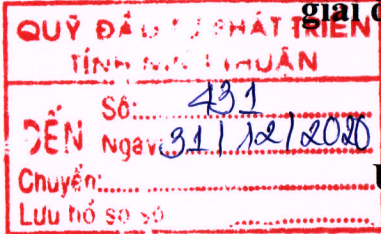 giai đ
QUỸ ĐẦU TƯ PHÁT TRIỂN
TỈNH NINH THUẬN
ĐẾN
Số: 431
Ngày: 31/12/2020
Chuyển:
Lưu hồ sơ số